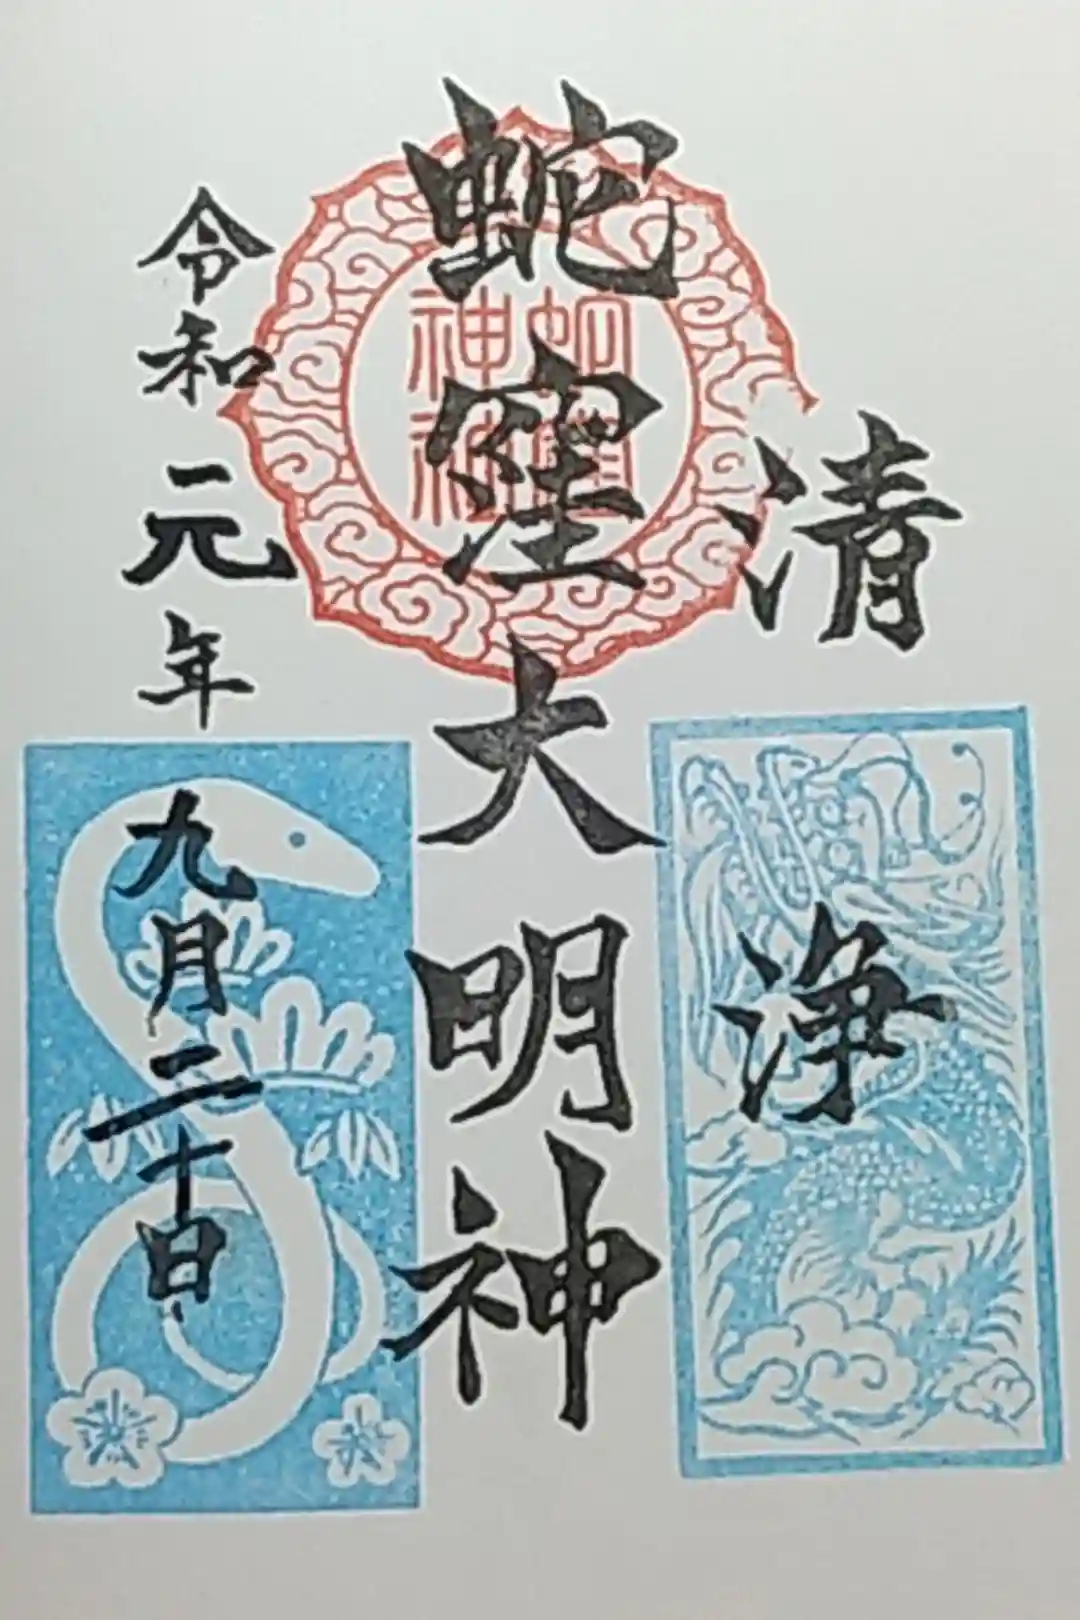 清浄
蛇窪大明神
令和元年九月二十日